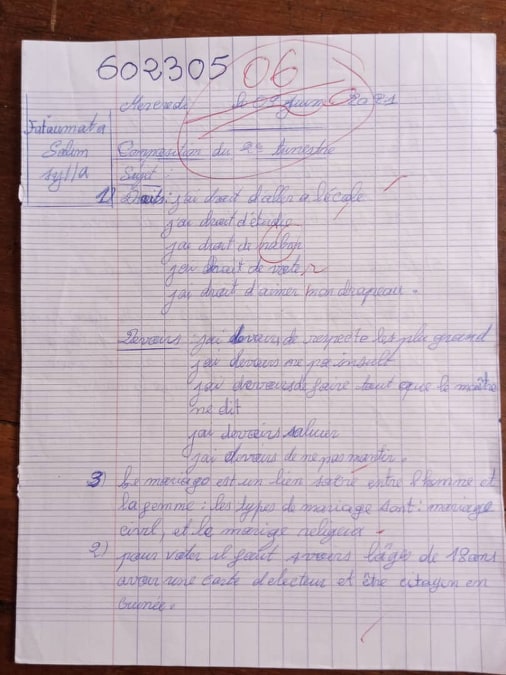 602305 06
Mercredi le 09 juin 2021
Fataumata
Salum
sylla
Composition du 2e trimestre
Sujet :
1) Droits : j'ai droit d'aller a l'école
j'ai droit d'étudie
j'ai droit de
j'ai droit de vote
j'ai droit d'aimer mon drapeau.
Devoirs : j'ai devoirs de respecte les plu grand
j'ai devoirs ne pa insult
j'ai devoirs de faire tout que le maître
me dit
j'ai devoirs saluer
j'ai devoirs de ne pas mantir.
3) Le mariage est un lien sacré entre l'homme et
la femme : les types de mariage sont : mariage
civil, et le marige religeux
2) pour voter il faut avoirs l'âge de 18 ans
avoir une carte d'electeur et être citoyen en
Guinée.